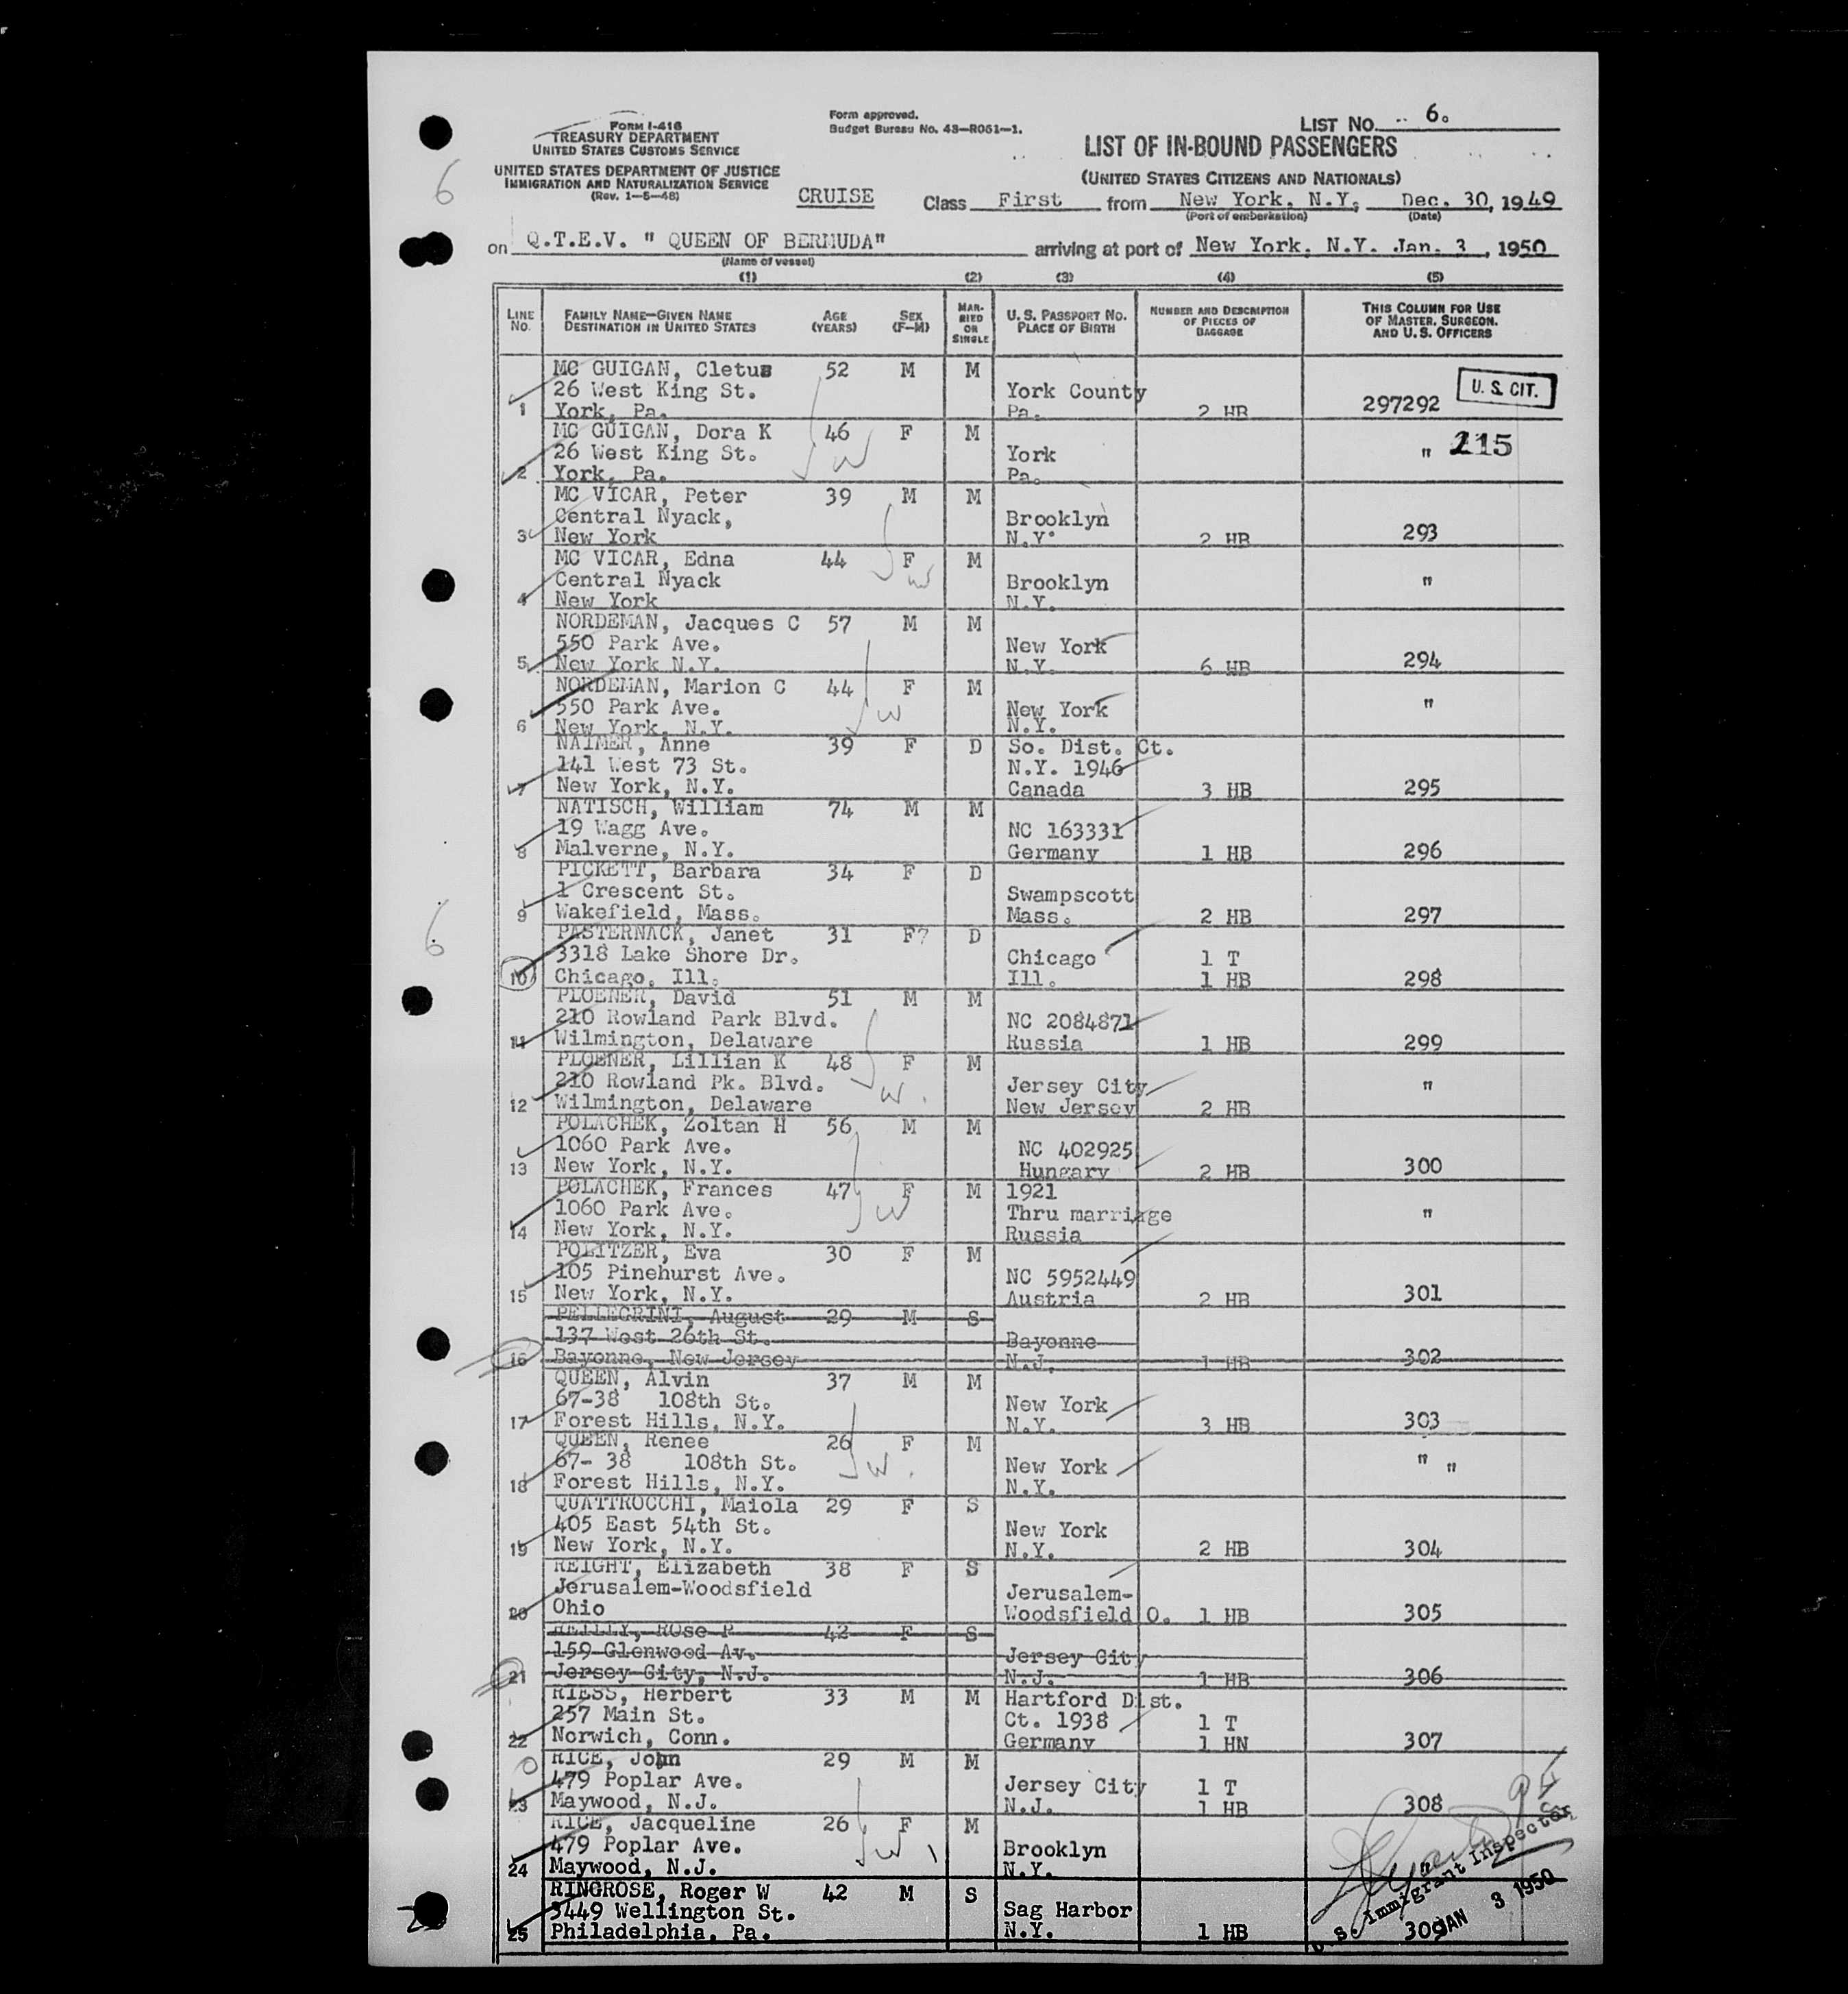 FORM I-416
TREASURY DEPARTMENT
UNITED STATES CUSTOMS SERVICE
UNITED STATES DEPARTMENT OF JUSTICE
IMMIGRATION AND NATURALIZATION SERVICE
(Rev. 1-5-48)
Form approved.
Budget Bureau No. 43-R051-1.
LIST NO. 6.
LIST OF IN-BOUND PASSENGERS
(UNITED STATES CITIZENS AND NATIONALS)
6
CRUISE Class First from New York, N.Y, Dec. 30, 1949
(Port of embarkation) (Date)
on Q.T.E.V. " QUEEN OF BERMUDA" arriving at port of New York, N.Y. Jan. 3, 1950
(Name of vessel)
(1) (2) (3) (4) (5)
LINE NO.
FAMILY NAME—GIVEN NAME
DESTINATION IN UNITED STATES
AGE (YEARS)
SEX (F-M)
MARRIED OR SINGLE
U. S. PASSPORT NO.
PLACE OF BIRTH
NUMBER AND DESCRIPTION OF PIECES OF BAGGAGE
THIS COLUMN FOR USE OF MASTER, SURGEON, AND U. S. OFFICERS
MC GUIGAN, Cletus 52 M M
26 West King St. York County U. S. CIT.
1 York, Pa. Pa. 2 HB 297292
MC GUIGAN, Dora K 46 F M
26 West King St. York " 215
2 York, Pa. W Pa.
MC VICAR, Peter 39 M M
Central Nyack, Brooklyn
3 New York N.Y. 2 HB 293
MC VICAR, Edna 44 F M
Central Nyack W Brooklyn "
4 New York N.Y.
NORDEMAN, Jacques C 57 M M
550 Park Ave. New York
5 New York N.Y. N.Y. 6 HB 294
NORDEMAN, Marion C 44 F M
550 Park Ave. W New York "
6 New York, N.Y. N.Y.
NAIMER, Anne 39 F D So. Dist. Ct.
141 West 73 St. N.Y. 1946
7 New York, N.Y. Canada 3 HB 295
NATISCH, William 74 M M
19 Wagg Ave. NC 163331
8 Malverne, N.Y. Germany 1 HB 296
PICKETT, Barbara 34 F D
1 Crescent St. Swampscott
9 Wakefield, Mass. Mass. 2 HB 297
6
PASTERNACK, Janet 31 F? D
3318 Lake Shore Dr. Chicago 1 T
10 Chicago, Ill. Ill. 1 HB 298
PLOENER, David 51 M M
210 Rowland Park Blvd. NC 2084871
11 Wilmington, Delaware Russia 1 HB 299
PLOENER, Lillian K 48 F M
210 Rowland Pk. Blvd. W. Jersey City "
12 Wilmington, Delaware New Jersey 2 HB
POLACHEK, Zoltan H 56 M M
1060 Park Ave. NC 402925
13 New York, N.Y. Hungary 2 HB 300
POLACHEK, Frances 47 F M 1921
1060 Park Ave. W Thru marriage "
14 New York, N.Y. Russia
POLITZER, Eva 30 F M
105 Pinehurst Ave. NC 5952449
15 New York, N.Y. Austria 2 HB 301
PELLEGRINI, August 29 M S
137 West 26th St. Bayonne
16 Bayonne, New Jersey N.J. 1 HB 302
QUEEN, Alvin 37 M M
67-38 108th St. New York
17 Forest Hills, N.Y. N.Y. 3 HB 303
QUEEN, Renee 26 F M
67- 38 108th St. W. New York " "
18 Forest Hills, N.Y. N.Y.
QUATTROCCHI, Maiola 29 F S
405 East 54th St. New York
19 New York, N.Y. N.Y. 2 HB 304
REIGHT, Elizabeth 38 F S
Jerusalem-Woodsfield Jerusalem-
20 Ohio Woodsfield O. 1 HB 305
REILLY, ROse P 42 F S
159 Glenwood Av. Jersey City
21 Jersey City, N.J. N.J. 1 HB 306
RIESS, Herbert 33 M M Hartford Dist.
257 Main St. Ct. 1938 1 T
22 Norwich, Conn. Germany 1 HN 307
RICE, John 29 M M
479 Poplar Ave. Jersey City 1 T
23 Maywood, N.J. N.J. 1 HB 308
RICE, Jacqueline 26 F M
479 Poplar Ave. W Brooklyn
24 Maywood, N.J. N.Y.
RINGROSE, Roger W 42 M S
3449 Wellington St. Sag Harbor
25 Philadelphia, Pa. N.Y. 1 HB 309
U. S. Immigrant Inspector
JAN 3 1950